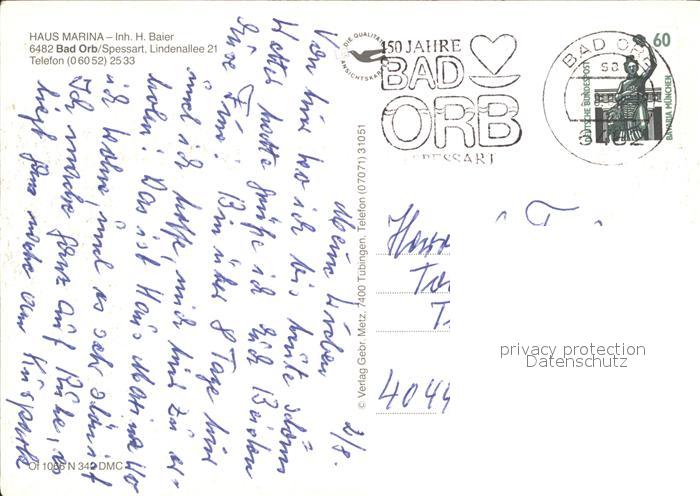 HAUS MARINA – Inh. H. Baier
6482 Bad Orb/Spessart, Lindenallee 21
Telefon (0 60 52) 25 33
DIE QUALITÄTS
ANSICHTSKARTE
150 JAHRE
BAD
ORB
SPESSART
BAD ORB
6482
60
DEUTSCHE BUNDESPOST
BAVARIA MÜNCHEN
© Verlag Gebr. Metz, 7400 Tübingen, Telefon (0 70 71) 3 10 51
2/8.
Meine Lieben
Von hier wo ich bis heute schönes
Wetter hatte grüße ich Euch Beiden
Bin über 8 Tage hier
und ich hoffe, mich hier zu er-
holen! Das ist Haus Marina wo
ich wohne, und es sehr schön ist
Ich mache ganz auf Ruhe, es
liegt ganz nahe am Kurpark
4044
privacy protection
Datenschutz
Of 1066 N 342 DMC